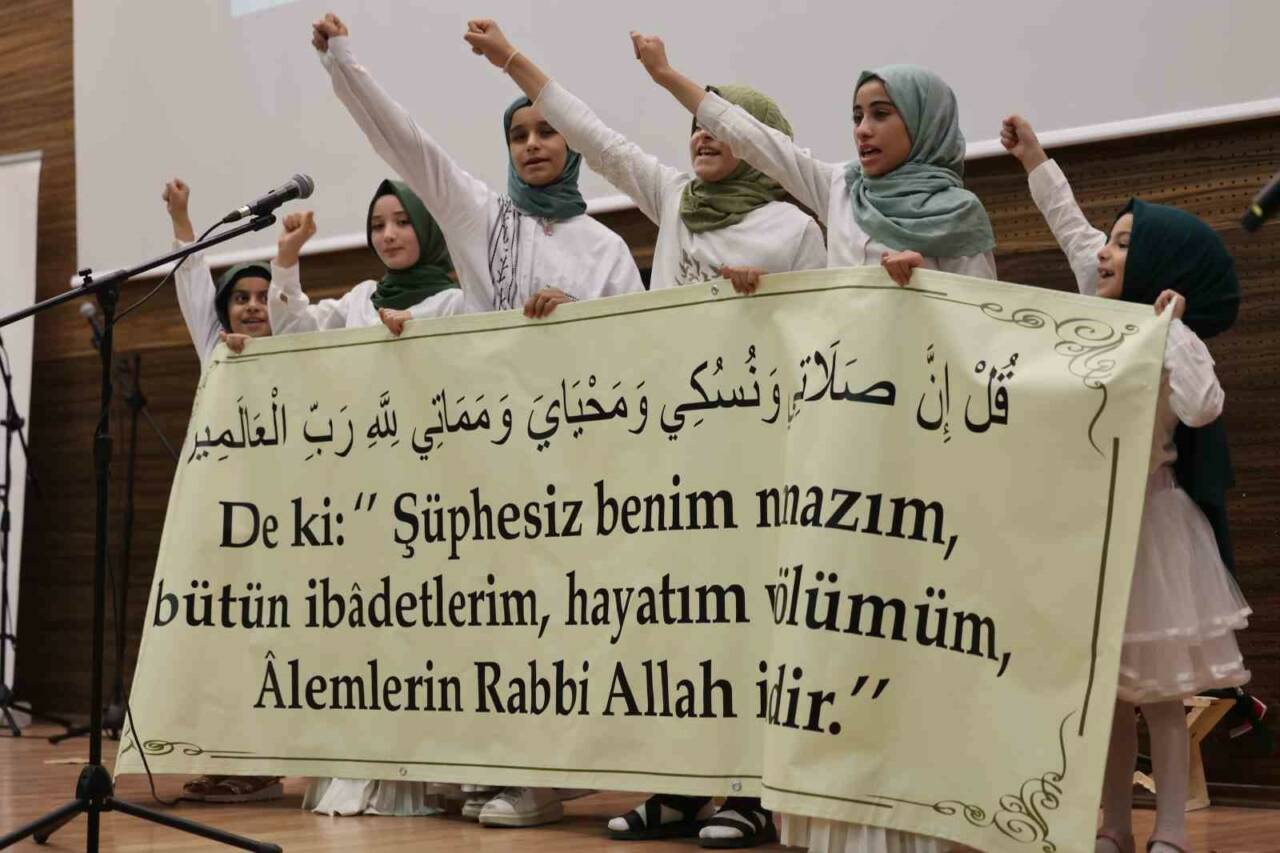 قُلْ إِنَّ صَلَاتِي وَنُسُكِي وَمَحْيَايَ وَمَمَاتِي لِلَّهِ رَبِّ الْعَالَمِينَ
De ki:‘‘ Şüphesiz benim namazım,
bütün ibâdetlerim, hayatım ölümüm,
Âlemlerin Rabbi Allah idir.’’